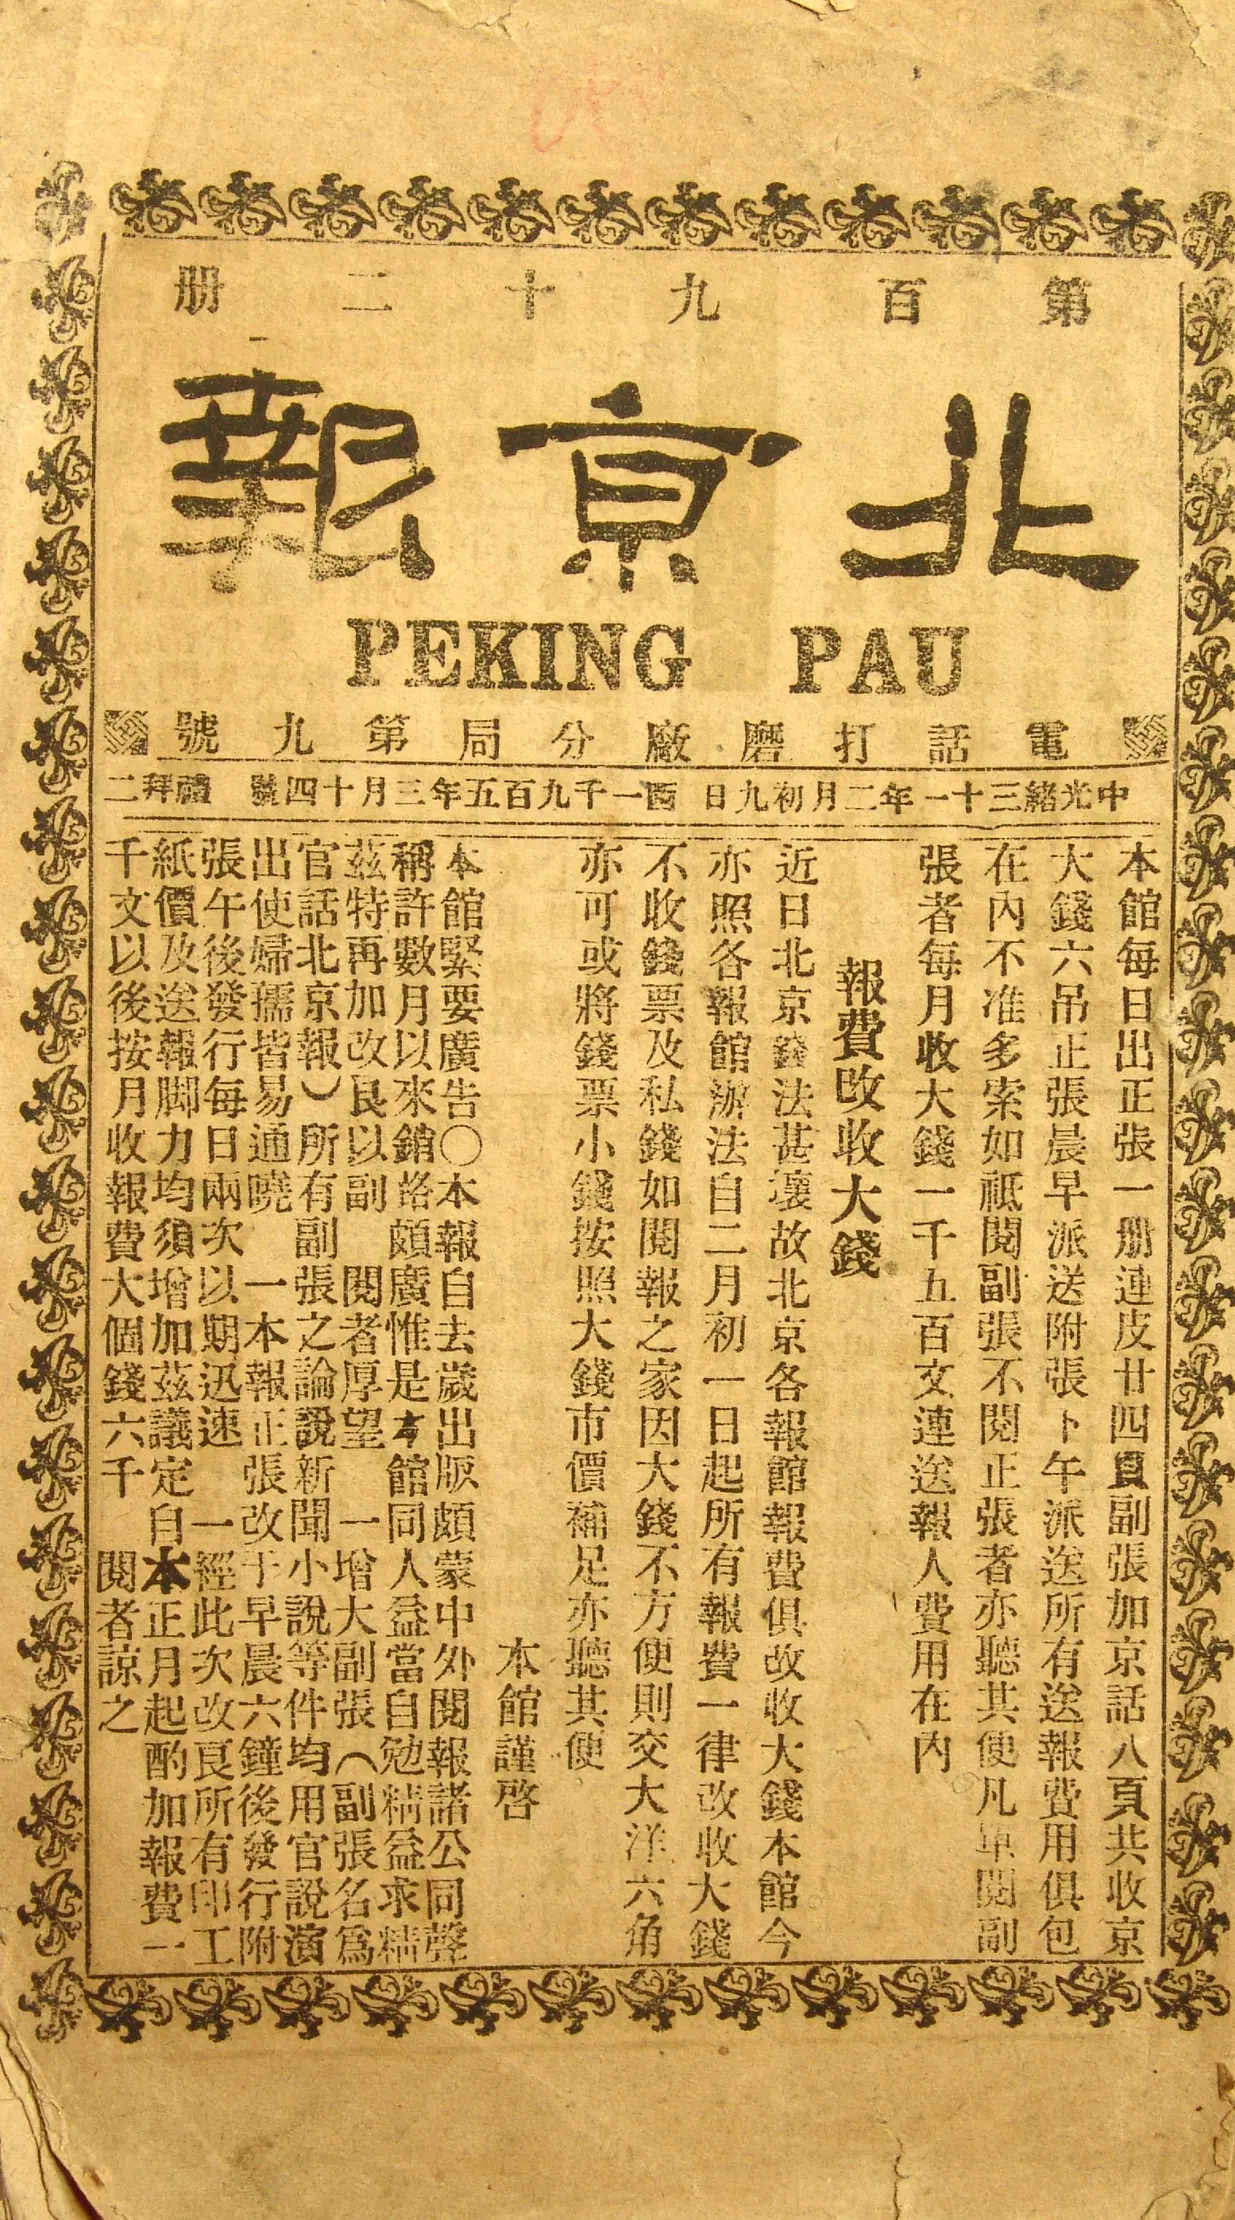 第百九十二册
北京報
PEKING PAU
電話打磨廠分局第九號
中光緒三十一年二月初九日 西一千九百五年三月十四號 禮拜二
本館每日出正張一册連皮廿四頁副張加京話八頁共收京
大錢六吊正張晨早派送附張下午派送所有送報費用俱包
在內不准多索如祗閱副張不閱正張者亦聽其便凡單閱副
張者每月收大錢一千五百文連送報人費用在內
報費改收大錢
近日北京錢法甚壞故北京各報館報費俱改收大錢本館今
亦照各報館辦法自二月初一日起所有報費一律改收大錢
不收錢票及私錢如閱報之家因大錢不方便則交大洋六角
亦可或將錢票小錢按照大錢市價補足亦聽其便
本館謹啓
本館緊要廣告○本報自去歲出版頗蒙中外閱報諸公同聲
稱許數月以來銷路頗廣惟是本館同人益當自勉精益求精
茲特再加改良以副 閱者厚望 一增大副張（副張名為
官話北京報）所有副張之論說新聞小說等件均用官說演
出使婦孺皆易通曉 一本報正張改于早晨六鐘後發行附
張午後發行每日兩次以期迅速 一經此次改良所有印工
紙價及送報脚力均須增加茲議定自本正月起酌加報費一
千文以後按月收報費大個錢六千 閱者諒之